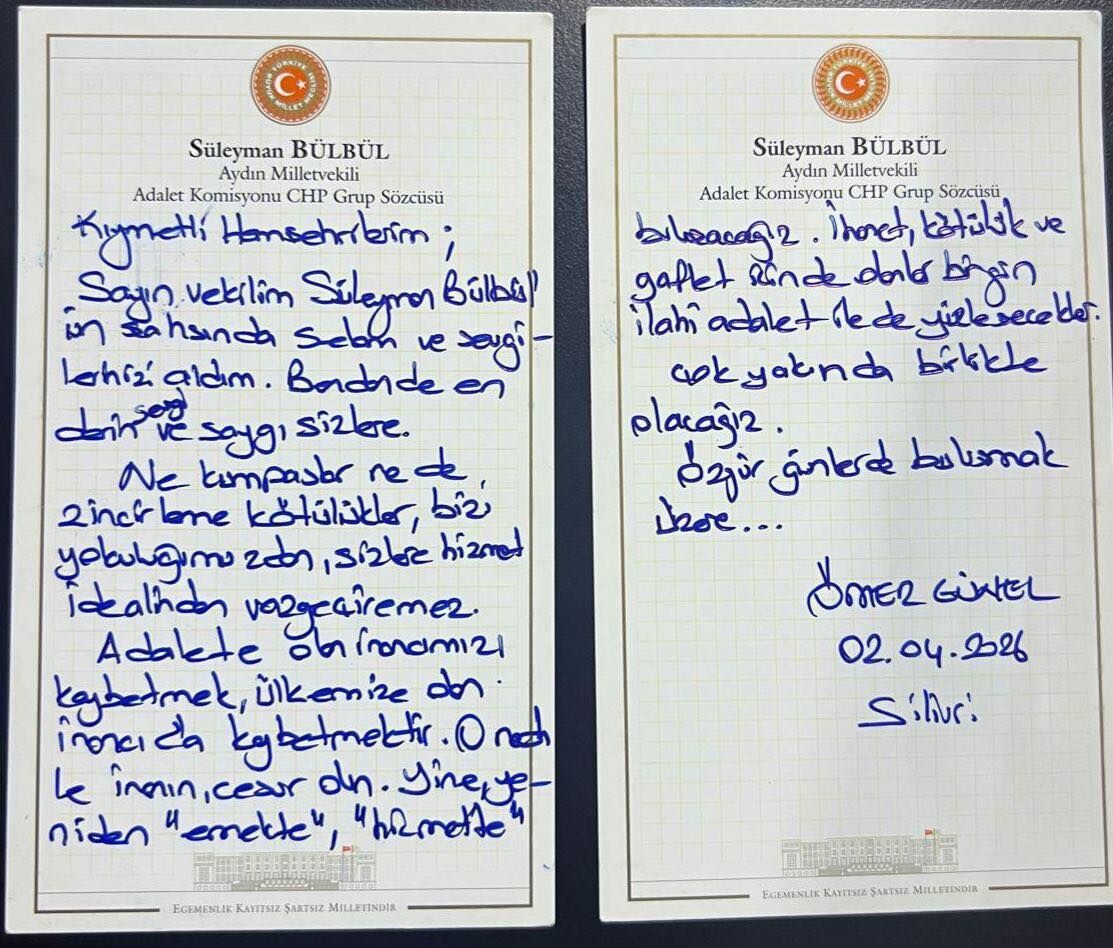 Süleyman BÜLBÜL
Aydın Milletvekili
Adalet Komisyonu CHP Grup Sözcüsü
Kıymetli Hemşehrilerim;
Sayın vekilim Süleyman Bülbül'
ün şahsında selam ve sevgi-
lerinizi aldım. Benden de en
derin sevgi ve saygı sizlere.
Ne kumpaslar ne de,
zincirleme kötülükler, bizi
yolculuğumuzdan, sizlere hizmet
idealinden vazgeçiremez.
Adalete olan inancımızı
kaybetmek, ülkemize olan
inancı da kaybetmektir. O neden
le inanın, cesur olun. Yine, ye-
niden "emekte", "hizmette"
EGEMENLİK KAYITSIZ ŞARTSIZ MİLLETİNDİR
Süleyman BÜLBÜL
Aydın Milletvekili
Adalet Komisyonu CHP Grup Sözcüsü
buluşacağız. İhanet, kötülük ve
gaflet içinde olanlar bir gün
ilahi adalet ile de yüzleşecekler.
Çok yakında birlikte
olacağız.
Özgür günlerde buluşmak
üzere...
ÖMER GÜNEL
02.04.2026
Silivri
EGEMENLİK KAYITSIZ ŞARTSIZ MİLLETİNDİR